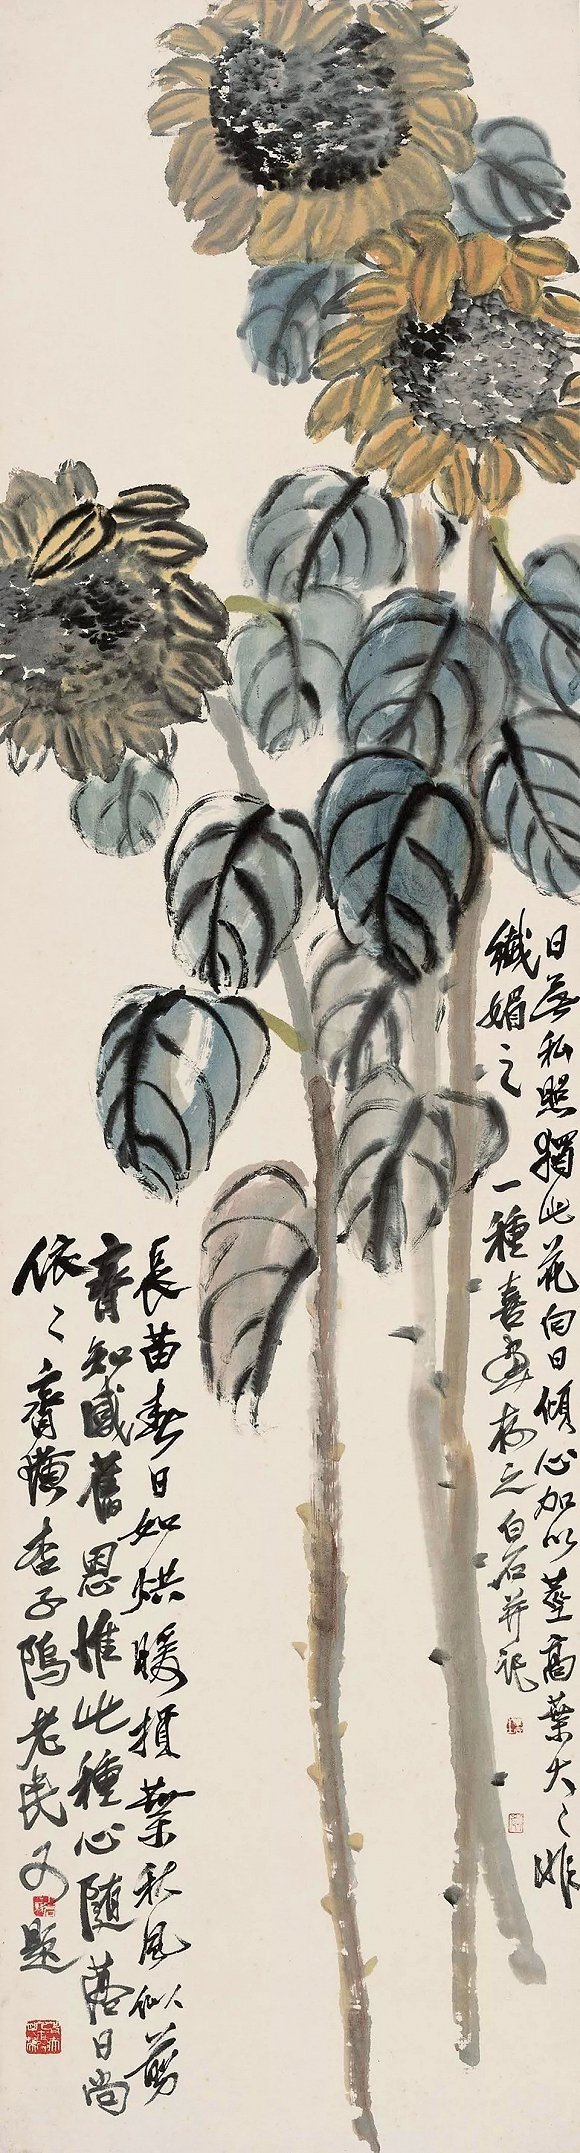 日無私照獨此花向日傾心加以莖高葉大々非
纖媚之一種喜畫存之白石并記
長苗春日如烘暖損葉秋風似剪
齊知感舊恩惟此種心隨落日尚
依々齊璜杏子隖老民又題